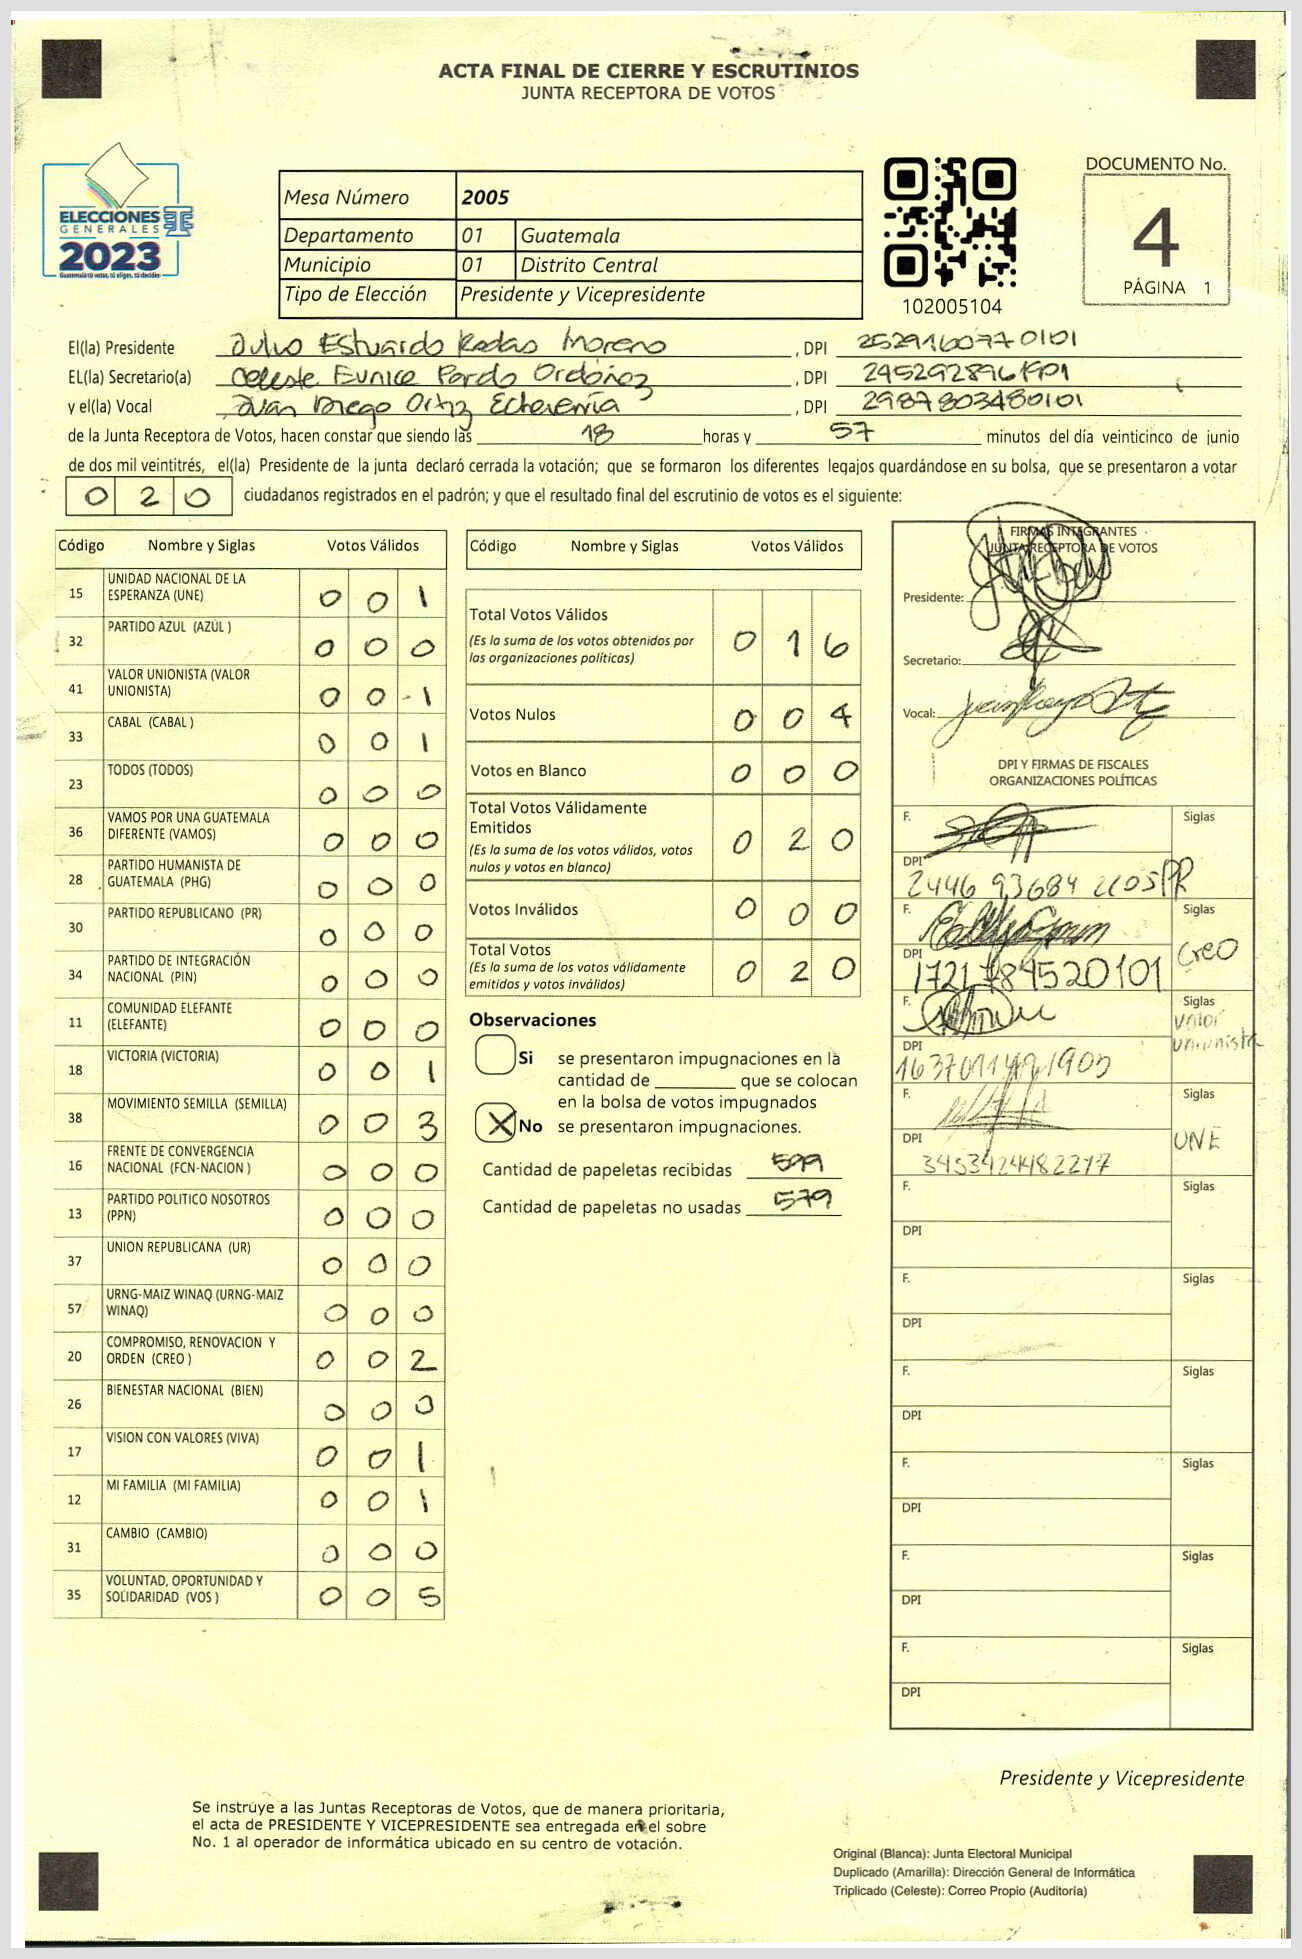 ACTA FINAL DE CIERRE Y ESCRUTINIOS
JUNTA RECEPTORA DE VOTOS
ELECCIONES
GENERALES
2023
Guatemala tú votas, tú eliges, tú decides
Mesa Número 2005
Departamento 01 Guatemala
Municipio 01 Distrito Central
Tipo de Elección Presidente y Vicepresidente
102005104
DOCUMENTO No.
4
PÁGINA 1
El(la) Presidente Julio Estuardo Rodas Moreno, DPI 2529160770101
EL(la) Secretario(a) Celeste Eunice Pardo Ordóñez, DPI
y el(la) Vocal Juan Diego Ortiz Echeverría, DPI 2987803480101
de la Junta Receptora de Votos, hacen constar que siendo las 18 horas y 57 minutos del día veinticinco de junio
de dos mil veintitrés, el(la) Presidente de la junta declaró cerrada la votación; que se formaron los diferentes legajos guardándose en su bolsa, que se presentaron a votar
0 2 0 ciudadanos registrados en el padrón; y que el resultado final del escrutinio de votos es el siguiente:
Código Nombre y Siglas Votos Válidos
15 UNIDAD NACIONAL DE LA
ESPERANZA (UNE) 0 0 1
32 PARTIDO AZUL (AZUL ) 0 0 0
41 VALOR UNIONISTA (VALOR
UNIONISTA) 0 0 1
33 CABAL (CABAL ) 0 0 1
23 TODOS (TODOS) 0 0 0
36 VAMOS POR UNA GUATEMALA
DIFERENTE (VAMOS) 0 0 0
28 PARTIDO HUMANISTA DE
GUATEMALA (PHG) 0 0 0
30 PARTIDO REPUBLICANO (PR) 0 0 0
34 PARTIDO DE INTEGRACIÓN
NACIONAL (PIN) 0 0 0
11 COMUNIDAD ELEFANTE
(ELEFANTE) 0 0 0
18 VICTORIA (VICTORIA) 0 0 1
38 MOVIMIENTO SEMILLA (SEMILLA) 0 0 3
16 FRENTE DE CONVERGENCIA
NACIONAL (FCN-NACION ) 0 0 0
13 PARTIDO POLITICO NOSOTROS
(PPN) 0 0 0
37 UNION REPUBLICANA (UR) 0 0 0
57 URNG-MAIZ WINAQ (URNG-MAIZ
WINAQ) 0 0 0
20 COMPROMISO, RENOVACION Y
ORDEN (CREO ) 0 0 2
26 BIENESTAR NACIONAL (BIEN) 0 0 0
17 VISION CON VALORES (VIVA) 0 0 1
12 MI FAMILIA (MI FAMILIA) 0 0 1
31 CAMBIO (CAMBIO) 0 0 0
35 VOLUNTAD, OPORTUNIDAD Y
SOLIDARIDAD (VOS ) 0 0 5
Código Nombre y Siglas Votos Válidos
Total Votos Válidos
(Es la suma de los votos obtenidos por
las organizaciones políticas) 0 1 6
Votos Nulos 0 0 4
Votos en Blanco 0 0 0
Total Votos Válidamente
Emitidos
(Es la suma de los votos válidos, votos
nulos y votos en blanco) 0 2 0
Votos Inválidos 0 0 0
Total Votos
(Es la suma de los votos válidamente
emitidos y votos inválidos) 0 2 0
Observaciones
Si se presentaron impugnaciones en la
cantidad de ________ que se colocan
en la bolsa de votos impugnados
X No se presentaron impugnaciones.
Cantidad de papeletas recibidas 599
Cantidad de papeletas no usadas 579
FIRMAS INTEGRANTES
JUNTA RECEPTORA DE VOTOS
Presidente:
Secretario:
Vocal:
DPI Y FIRMAS DE FISCALES
ORGANIZACIONES POLÍTICAS
F. Siglas
DPI
2446 93684 PR
F. Siglas
CREO
DPI
1721784520101
F. Siglas
Valor
Unionista
DPI
F. Siglas
UNE
DPI
3453424482217
F. Siglas
DPI
F. Siglas
DPI
F. Siglas
DPI
F. Siglas
DPI
F. Siglas
DPI
F. Siglas
DPI
Presidente y Vicepresidente
Se instruye a las Juntas Receptoras de Votos, que de manera prioritaria,
el acta de PRESIDENTE Y VICEPRESIDENTE sea entregada en el sobre
No. 1 al operador de informática ubicado en su centro de votación.
Original (Blanca): Junta Electoral Municipal
Duplicado (Amarilla): Dirección General de Informática
Triplicado (Celeste): Correo Propio (Auditoría)